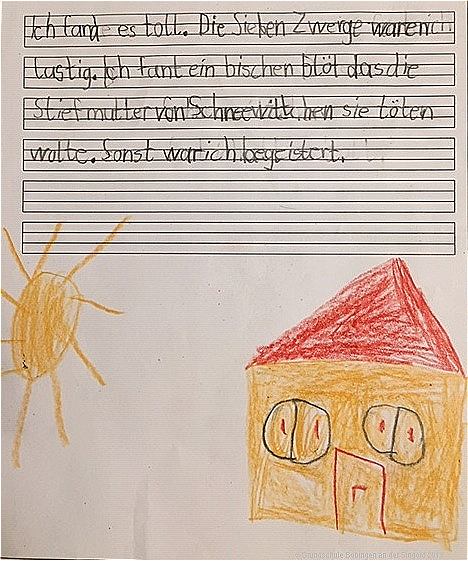 Ich fand es toll. Die Sieben Zwerge waren
lustig. Ich fant ein bischen blöt das die
Stiefmutter von Schneewittchen sie töten
wolte. Sonst war ich begeistert.
© Grundschule Bobingen an der Singold